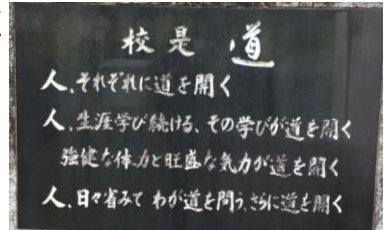 校是 道
人、それぞれに道を開く
人、生涯学び続ける、その学びが道を開く
強健な体力と旺盛な気力が道を開く
人、日々省みて わが道を問う、さらに道を開く